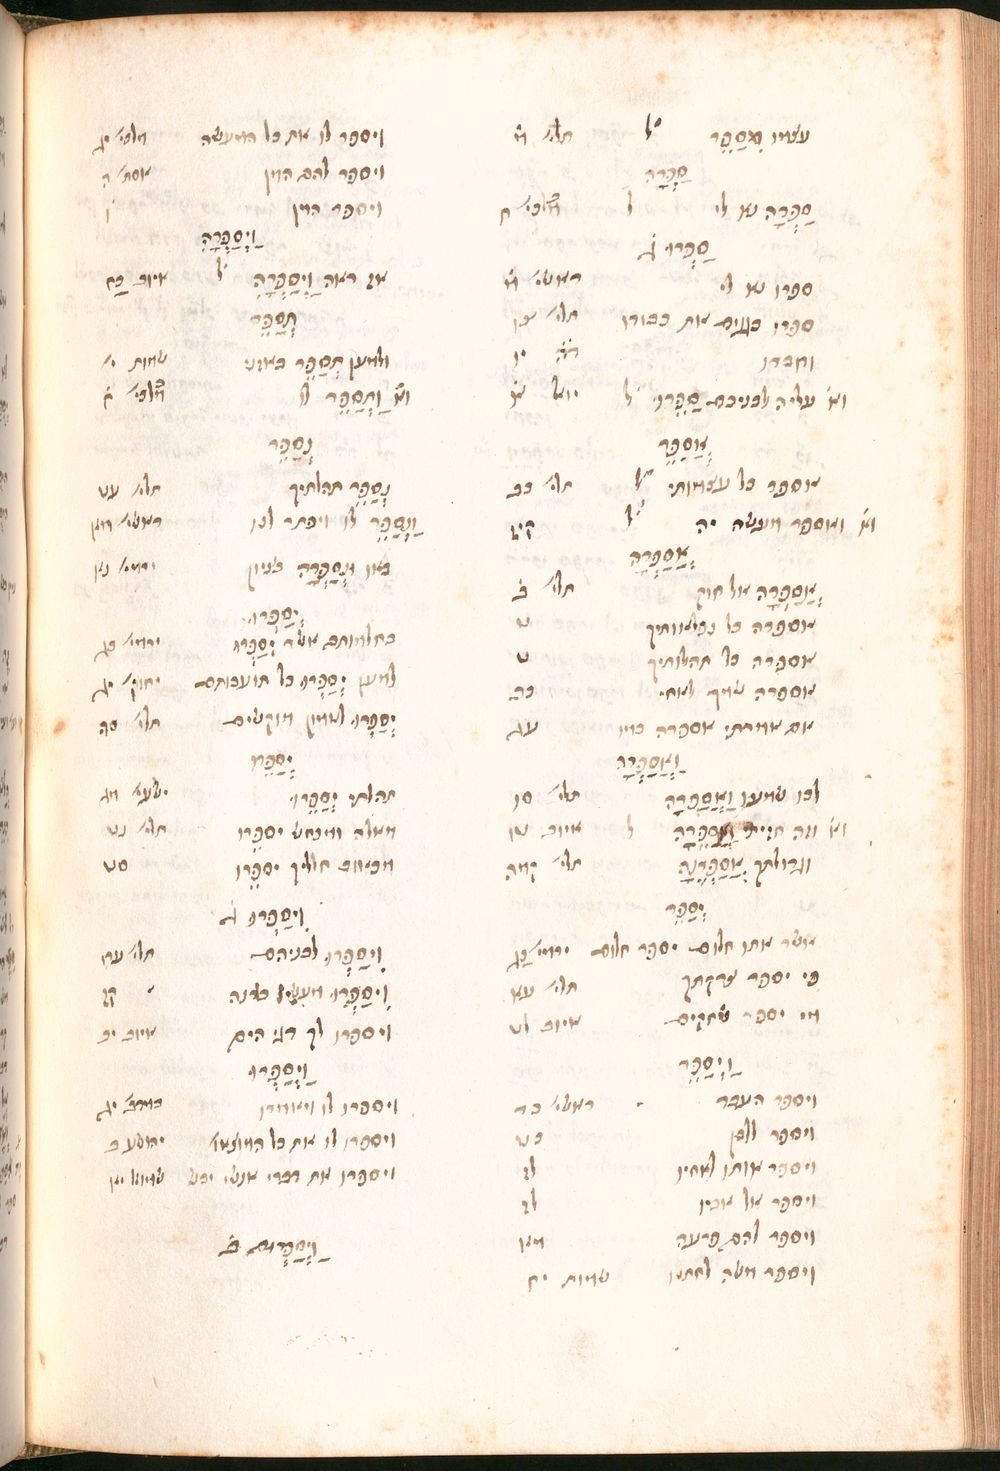 עצמו מִסַפֵר ל תלי׳ מ
סַפְּרָה
סַפְּרָה נא לי ל מלכי׳ ח
סַפְּרוּ ג
ספרו נא לי ראשי׳ מ
ספרו בגוים את כבודו תלי׳ צו
וחברו דה׳ יו
וא׳ עליה לבניכם סַפֵּרוּ ל יואל א
אֲסַפֵּר
אספר כל עצמותי ל תלי׳ כב
וא׳ ואספר מעשה יה ל קיח
אֲסַפְּרָה
אֲסַפְּרָה אל חוק תלי׳ ב
אספרה כל נפלאותיך ט
אספרה כל תהלותיך ט
אספרה שמך לאחי כב
אם אמרתי אספרה כמו עג
וַאֲסַפְּרָה
לכו שמעו וַאֲסַפְּרָה תלי׳ סו
וא׳ וזה חזיתי וַאֲסַפֵּרָה ל איוב טו
וגדולתך אֲסַפְּרֶנָּה תלי׳ קמה
יְסַפֵּר
אשר אתו חלום יספר חלום ירמי׳ כג
פי יספר צדקתך תלי׳ עא
מי יספר שחקים איוב לח
וַיְסַפֵּר
ויספר העבד ראשי׳ כד
ויספר ללבן כט
ויספר אותו לאחיו לז
ויספר אל אביו לז
ויספר להם פרעה מא
ויספר משה לחתנו שמות יח
ויספר לו את כל המעשה מלכי׳ יג
ויספר להם המן אסת׳ ה
ויספר המן ו
וַיְסַפְּרָהּ
אז ראה וַיְסַפְּרָהּ ל איוב כח
תְּסַפֵּר
ולמען תְּסַפֵּר באזני שמות י
וא׳ וַתְּסַפֵּר לו מלכי׳ ח
נְסַפֵּר
נְסַפֵּר תהלתיך תלי׳ עט
וַנְּסַפֵּר לו ויפתר לנו ראשי׳ מא
באו וּנְסַפְּרָה בציון ירמי׳ נא
יְסַפְּרוּ
בחלומתם אשר יְסַפְּרוּ ירמי׳ כג
למען יְסַפְּרוּ כל תועבותם יחזק׳ יב
יְסַפְּרוּ לטמון מוקשים תלי׳ סד
יְסַפֵּרוּ
תהלתי יְסַפֵּרוּ ישעי׳ מג
מאלה ומכחש יספרו תלי׳ נט
מכאוב חלליך יספרו סט
וִיסַפְּרוּ ג
וִיסַפְּרוּ לבניהם תלי׳ עח
וִיסַפְּרוּ מעשיו ברנה קז
ויספרו לך דגי הים איוב יב
וַיְסַפְּרוּ
ויספרו לו ויאמרו במדב׳ יג
ויספרו לו את כל המוצאות יהושע ב
ויספרו את דברי אנשי יבש שמואל יא
וַיְסַפְּרוּם ב